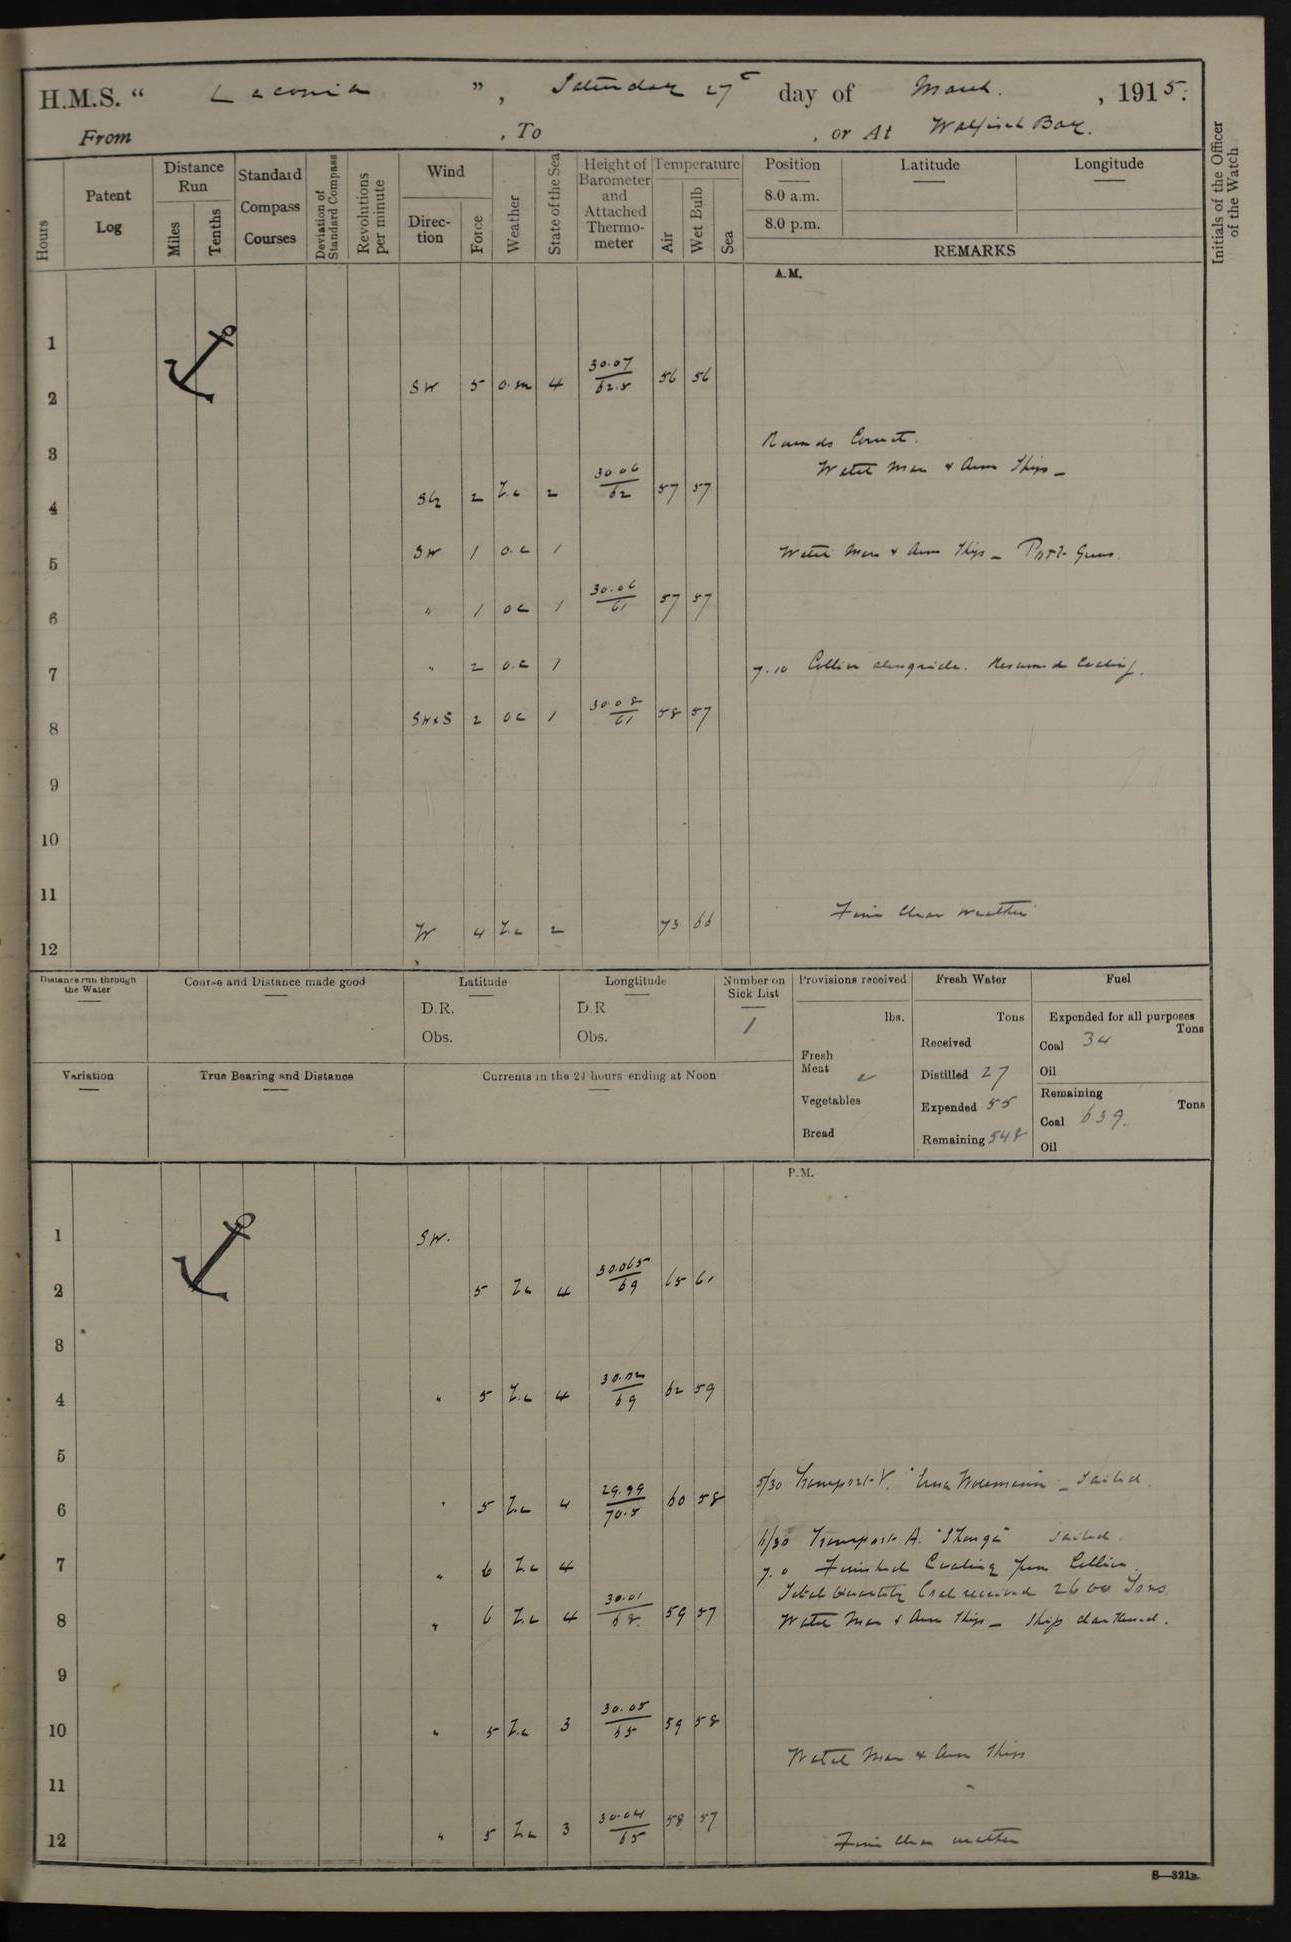 H.M.S. " Laconia ", Saturday 27th day of March, 1915.
From , To , or At Walfisch Bay.
Hours
Patent Log
Distance Run
Miles
Tenths
Standard Compass Courses
Deviation of Standard Compass
Revolutions per minute
Wind
Direction
Force
Weather
State of the Sea
Height of Barometer and Attached Thermometer
Temperature
Air
Wet Bulb
Sea
Position
Latitude
Longitude
8.0 a.m.
8.0 p.m.
REMARKS
Initials of the Officer of the Watch
A.M.
1
2 SW 5 o.m 4 30.07/62.5 56 56
3 Rounds Correct.
Watch Man & Arm Ship -
4 2 2 30.06/62 57 57
5 SW 1 o.c 1 Watch Man & Arm Ship - Port Guns.
6 " 1 oc 1 30.06/61 57 57
7 " 2 o.c 1 7.10 Collier alongside. Resumed Coaling.
8 SWxS 2 oc 1 30.08/61 58 57
9
10
11
Fine Clear weather
12 W 4 Z.c 2 73 66
Distance run through the Water
Course and Distance made good
Latitude
D.R.
Obs.
Longtitude
D.R
Obs.
Number on Sick List
1
Provisions received
lbs.
Fresh Meat
Vegetables
Bread
Fresh Water
Tons
Received
Distilled 27
Expended 55
Remaining 548
Fuel
Expended for all purposes
Tons
Coal 34
Oil
Remaining
Tons
Coal 639.
Oil
Variation
True Bearing and Distance
Currents in the 24 hours ending at Noon
P.M.
1 SW.
2 5 Z.c 4 30.065/69 65 61
3
4 " 5 Z.c 4 30.02/69 62 59
5
5/30 Transport V. " Woermann" - Sailed.
6 " 5 Z.c 4 29.99/70.5 60 58
6/30 Transport A. "Shonga" Sailed.
7 " 6 Z.c 4 7.0 Finished Coaling from Collier.
Total Quantity Coal received 2600 Tons.
8 " 6 Z.c 4 30.01/68. 59 57 Watch Man & Arm Ship - Ship darkened.
9
10 " 5 Z.c 3 30.05/65 59 58
Watch Man & Arm Ship
11
12 " 5 Z.c 3 30.04/65 58 57 Fine Clear weather
S—321B.